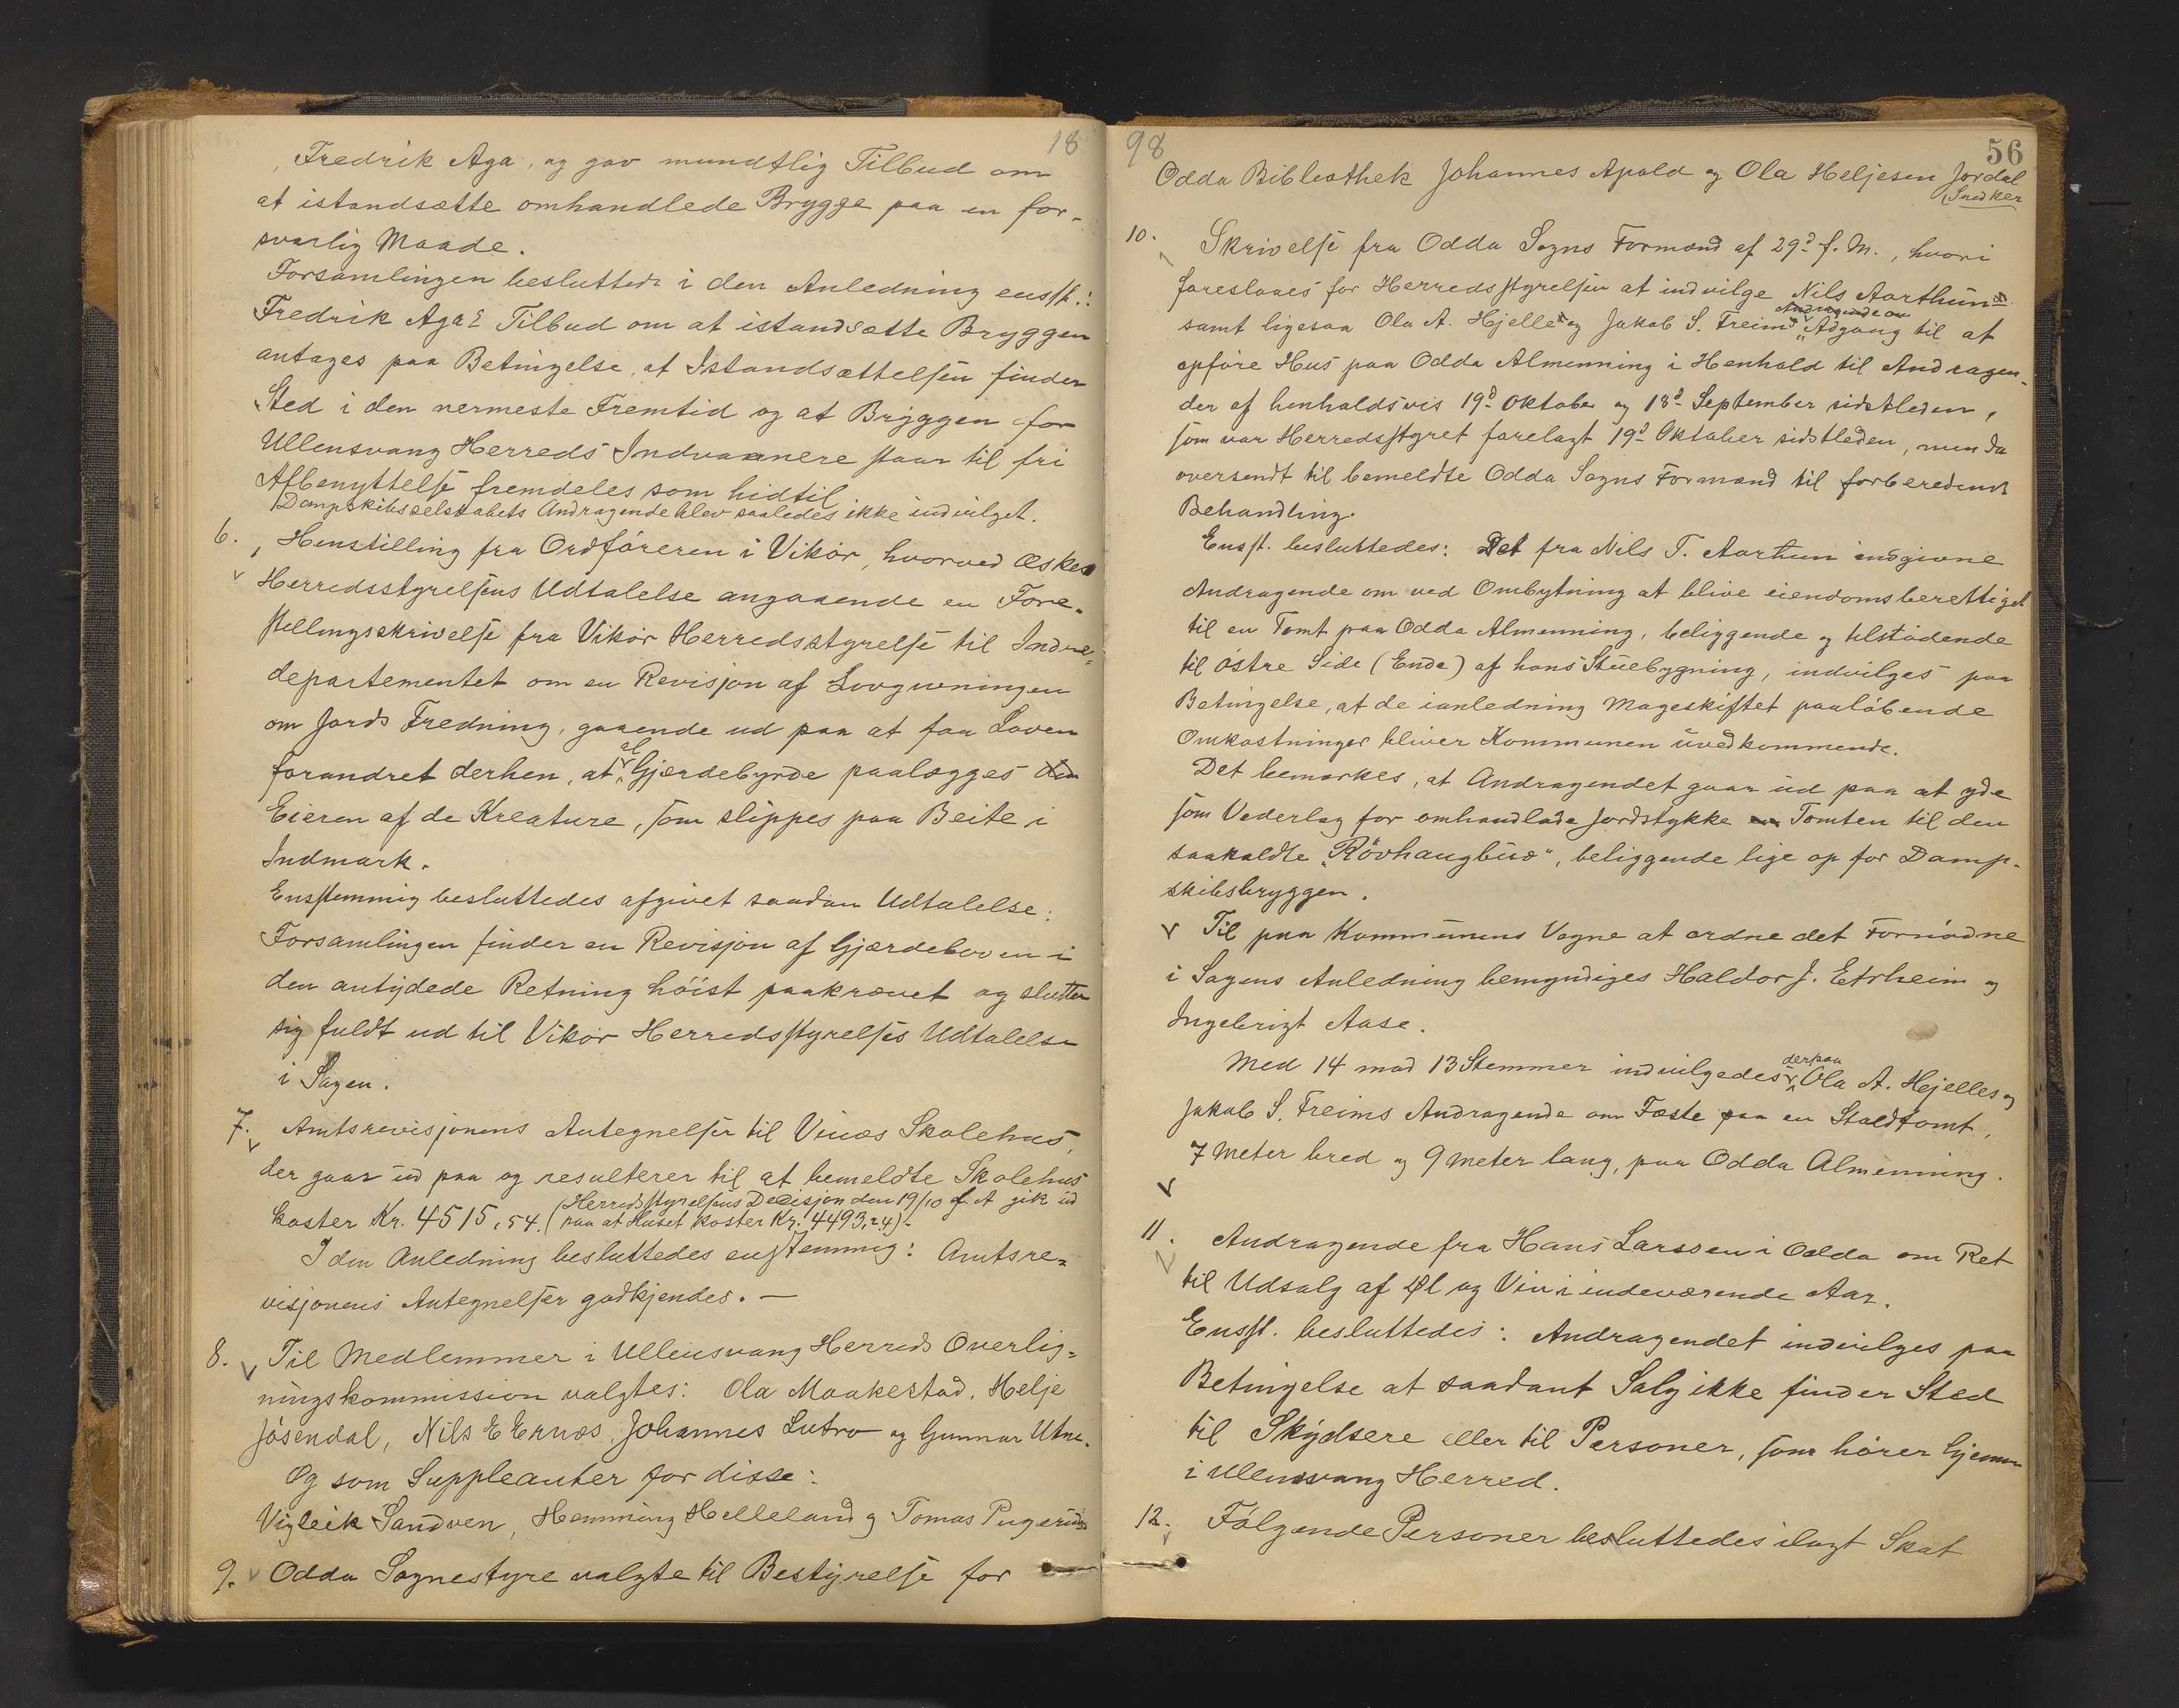 18
Fredrik Aga, og gav mundtlig Tilbud om
at istandsætte omhandlede Brygge paa en for-
svarlig Maade.
Forsamlingen besluttede i den Anledning enst.:
Fredrik Agas Tilbud om at istandsætte Bryggen
antages paa Betingelse, at Istandsættelsen finder
Sted i den nermeste Fremtid og at Bryggen for
Ullensvang Herreds Indvaanere staar til fri
Afbenyttelse fremdeles som hidtil
Dampskibsselskabets Andragende blev saaledes ikke indvilget.
6. Henstilling fra Ordføreren i Vikør, hvorved æskes
Herredsstyrelsens Udtalelse angaaende en Fore-
stillingsskrivelse fra Vikør Herredsstyrelse til Indre-
departementet om en Revisjon af Lovgivningen
om Jords Fredning, gaaende ud paa at faa Loven
forandret derhen, at al Gjerdebyrde paalægges den
Eieren af de Kreature, som slippes paa Beite i
Indmark.
Enstemmig besluttedes afgivet saadan Udtalelse:
Forsamlingen finder en Revisjon af Gjærdeloven i
den antydede Retning höist paakrævet og slutter
sig fuldt ud til Vikør Herredsstyrelses Udtalelse
i Sagen.
7. Amtsrevisjonens Antegnelser til Vinæs Skolehus,
der gaar ud paa og resulterer til at bemeldte Skolehus
koster Kr. 4515,54. (Herredsstyrelsens Decisjon den 19/10 f. A gik ud
paa at Huset koster Kr. 4493,24).
I den Anledning besluttedes enstemmig: Amtsre-
visjonens Antegnelser godkjendes. —
8. Til Medlemmer i Ullensvang Herreds Overlig-
ningskommission valgtes: Ola Maakestad, Helje
Jösendal, Nils E Ernæs, Johannes Lutro og Gunnar Utne.
Og som Suppleanter for disse:
Vigleik Sandven, Hemming Helleland og Tomas Pugerud
9. Odda Sognestyre valgte til Bestyrelse for
98
56
Odda Bibliothek Johannes Apold og Ola Heljesen Jordal
Snedker
10. Skrivelse fra Odda Sogns Formænd af 29d f. M., hvori
foreslaaes for Herredsstyrelsen at indvilge Nils Aarthuns
Andragende om
samt ligesaa Ola A. Hjelles og Jakob S. Freims Adgang til at
opføre Hus paa Odda Almenning i Henhold til Andragen-
der af henholdsvis 19d Oktober og 18d September sidstleden,
som var Herredsstyret forelagt 19d Oktober sidstleden, men da
oversendt til bemeldte Odda Sogns Formænd til forberedende
Behandling.
Enst. besluttedes: Det fra Nils T. Aartun indgivne
Andragende om ved Ombytning at blive eiendomsberettiget
til en Tomt paa Odda Almenning, beliggende og tilstødende
til østre Side (Ende) af hans Stuebygning, indvilges paa
Betingelse, at de ianledning Mageskiftet paaløbende
Omkostninger bliver Kommunen uvedkommende.
Det bemærkes, at Andragendet gaar ud paa at yde
som Vederlag for omhandlede Jordstykke Tomten til den
saakaldte "Rövhaugbud", beliggende lige op for Damp-
skibsbryggen.
Til paa Kommunens Vegne at ordne det Fornødne
i Sagens Anledning bemyndiges Haldor J. Etrheim og
Ingebrigt Aase.
Med 14 mod 13 Stemmer indvilgedes derpaa Ola A. Hjelles og
Jakob S. Freims Andragende om Fæste paa en Staldtomt,
7 Meter bred og 9 Meter lang, paa Odda Almenning.
11. Andragende fra Hans Larssen i Odda om Ret
til Udsalg af Øl og Vin i indeværende Aar.
Enst. besluttedes: Andragendet indvilges paa
Betingelse at saadant Salg ikke finder Sted
til Skydsere eller til Personer, som hører hjemme
i Ullensvang Herred.
12. Følgende Personer besluttedes ilagt Skat